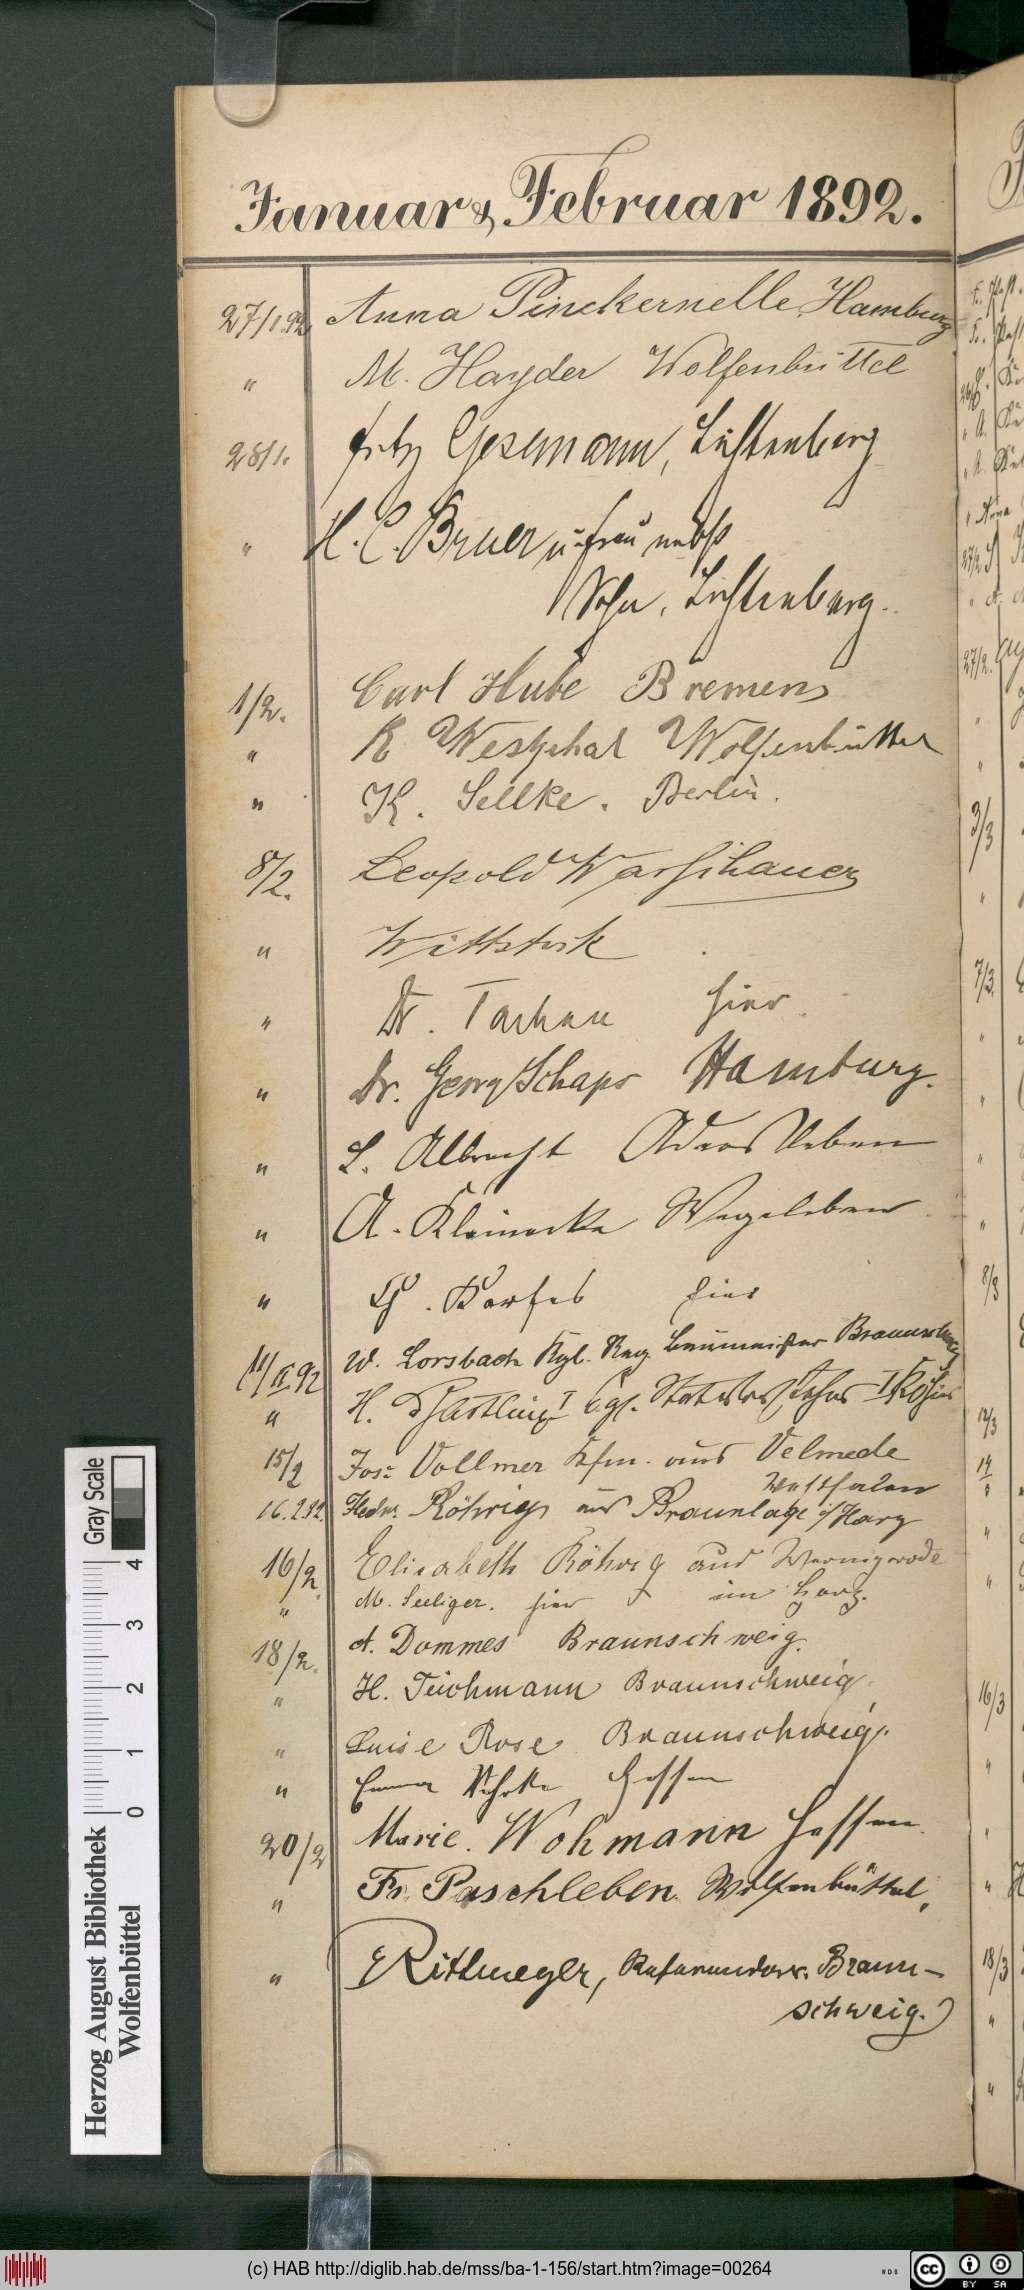 Januar & Februar 1892.
27/1.92. Anna Pinckernelle, Hamburg
" M. Hayder Wolfenbüttel
28/1. Fritz Gesemann, Lichtenberg
" H. C. Bruer u. Frau nebst
Sohn, Lichtenberg.
1/2. Carl Hube Bremen
" R Westphal Wolfenbüttel
" K. Sellke. Berlin.
8/2. Leopold Warschauer
" Wittstock
" Dr. Tachau hier.
" Dr. Georg Schaps Hamburg.
" L. Albrecht Aders leben
" A. Kleinecke Wegeleben
" hier
11/II 92 W. Lorsbach Kgl. Reg. Baumeister Braunschweig
" H.
15/2 Jos. Vollmer Kfm. aus Velmede
Westfalen
16.2.92. Hedw. Röhrig aus Braunlage i/Harz
16/2. Elisabeth Röhrig aus Wernigerode
im Harz.
" M. Seeliger. hier
18/2. A. Dommes Braunschweig.
" H. Teichmann Braunschweig.
" Luise Rose Braunschweig.
" Emma Hessen
20/2 Marie. Wohmann Hessen.
" Fr. Paschleben. Wolfenbüttel.
" Rittmeyer, Referendar. Braun-
schweig.
Gray Scale
0 1 2 3 4
Herzog August Bibliothek
Wolfenbüttel
27/2.
3/3
7/3.
8/3
12/3
16/3
18/3
(c) HAB http://diglib.hab.de/mss/ba-1-156/start.htm?image=00264
WDB
cc BY SA